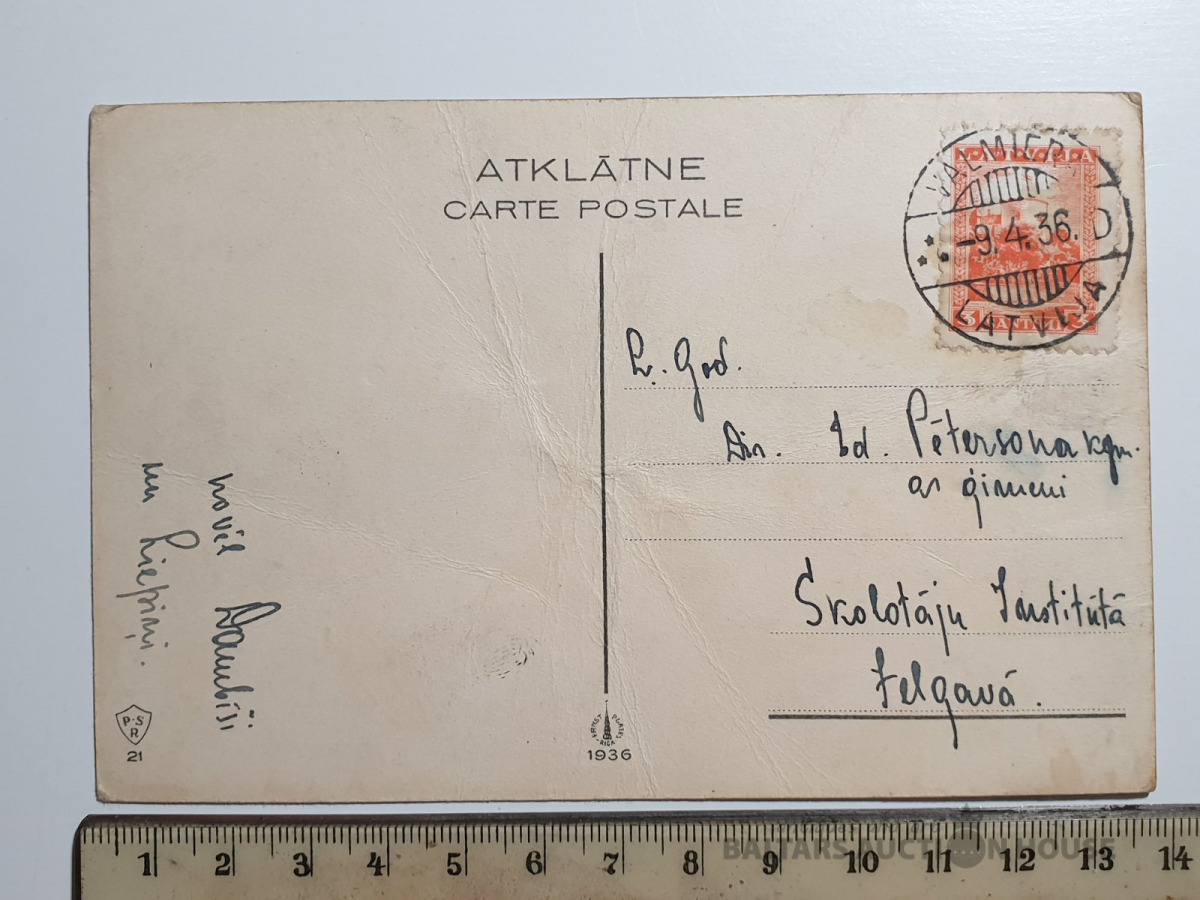 ATKLĀTNE
CARTE POSTALE
LATVIJA
3 SANTIMI 3
VALMIERA
-9. 4. 36. D
LATVIJA
L. God.
Dir. Ed. Pētersona kgm.
ar ģimeni
Skolotāju Institūtā
Jelgavā.
novēl Dambīši
un Liepiņi.
P.S
R
21
ERNST PLATES
RIGA
1936
1 2 3 4 5 6 7 8 9 10 11 12 13 14
BALTARS AUCTION HOUSE